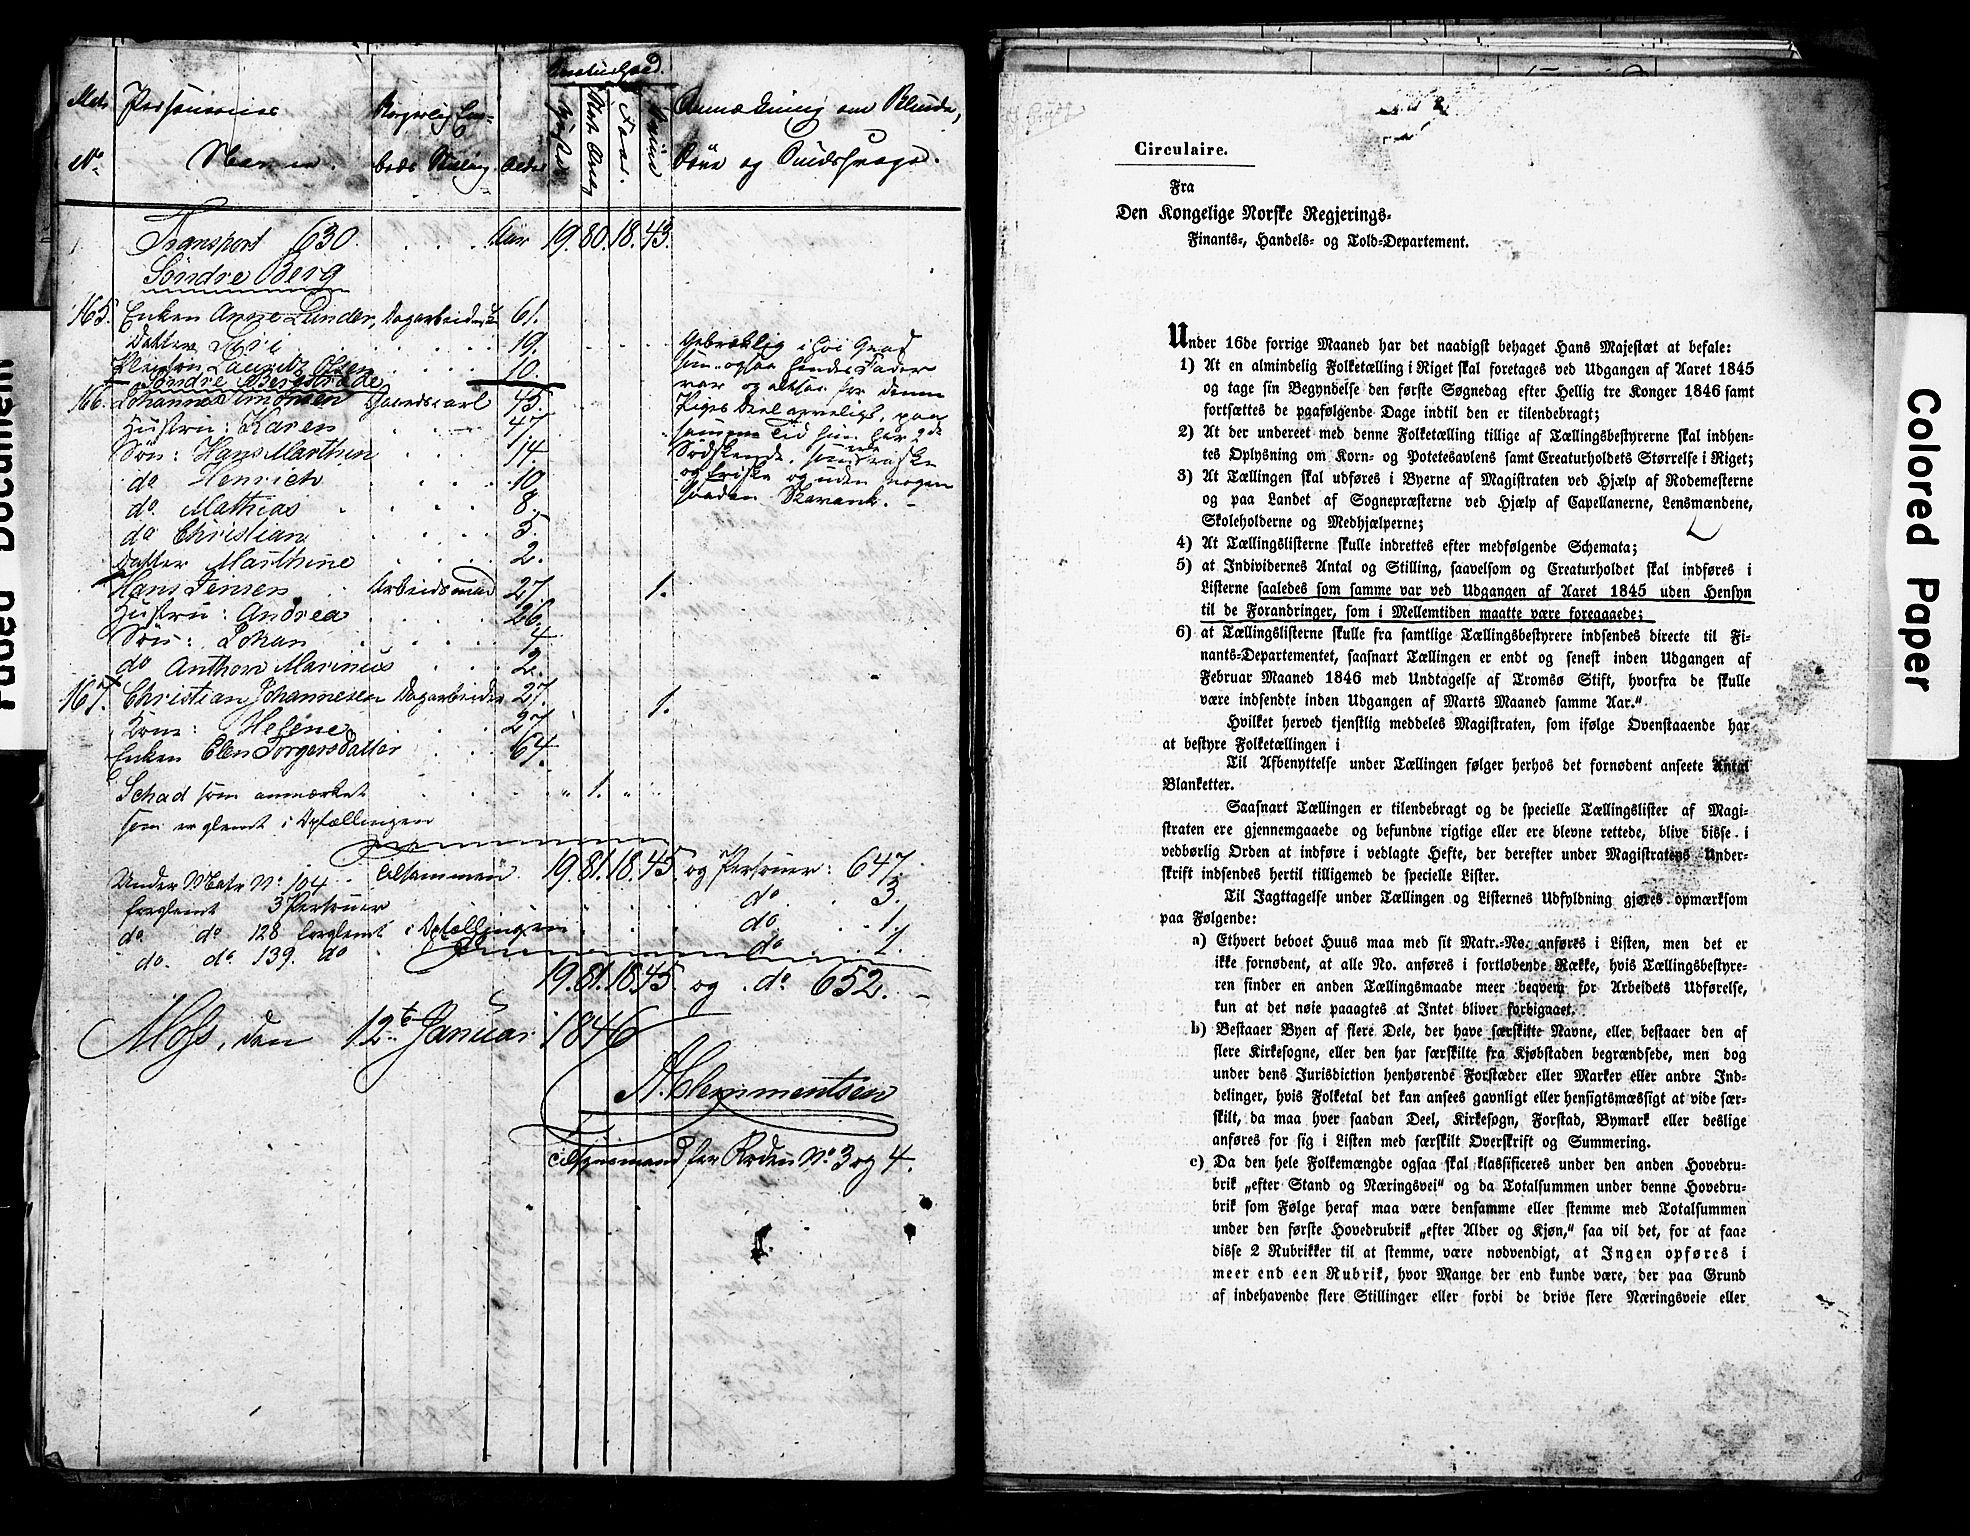 Matr Personernes
No Navne.
Borgerlig Em-
beds Stilling
Alder
Creaturhold.
Heste
Stort Qvæg
Faar.
Sviin
Anmærkning om Blinde,
Døve og Sindssvage.
Transport 630. Aar 19. 80. 18. 43.
Søndre Berg
165. Enken Anne Lunder, Dagarbeidsk 61.
Datter 19.
Pleiesøn Lauritz Olsen 10.
Gebræklig i høi Grad
som ogsaa hendes Fader
var og altsaa for denne
Piges Deel arveligt, paa
samme Tid hun har 9 de
Sødskende, som raske
og friske og uden nogen
saadan Skavank.
Søndre Bergstræde
166. Johannes Simonsen Gaardskarl 45
Hustru: Karen 47.
Søn: Hans Marthin 14.
do Henrich 10.
do Mathias 8.
do Christian 5.
Datter Marthine 2.
Hans Jensen Arbeidsmand 27. 1.
Hustru: Andrea 26.
Søn: Johan 4
do Anthon Marinus 2.
167. Christian Johannesen Dagarbeider 27. 1.
Kone: Helene 27.
Enken Elen Torgersdatter 64.
Schad som anmærket " 1. " "
som er glemt i Optællingen
Under Matr No 104 Alsammen 19. 81. 18. 45. og Personer: 647.
forglemt 3 Personer do 3.
do. do 128 forglemt i Optællingen do 1.
do. do. 139. do do 1.
19. 81. 18. 45. og do 652.
Moss, den 12te Januar 1846
A. Clemmentsen
Opsynsmand for Roden No 3 og 4.
Faded Document
Circulaire.
Fra
Den Kongelige Norske Regjerings-
Finants-, Handels- og Told-Departement.
Under 16de forrige Maaned har det naadigst behaget Hans Majestæt at befale:
1) At en almindelig Folketælling i Riget skal foretages ved Udgangen af Aaret 1845
og tage sin Begyndelse den første Søgnedag efter Hellig tre Konger 1846 samt
fortsættes de paafølgende Dage indtil den er tilendebragt;
2) At der undereet med denne Folketælling tillige af Tællingsbestyrerne skal indhen-
tes Oplysning om Korn- og Potetesavlens samt Creaturholdets Størrelse i Riget;
3) At Tællingen skal udføres i Byerne af Magistraten ved Hjælp af Rodemesterne
og paa Landet af Sognepræsterne ved Hjælp af Capellanerne, Lensmændene,
Skoleholderne og Medhjælperne;
4) At Tællingslisterne skulle indrettes efter medfølgende Schemata;
5) at Individernes Antal og Stilling, saavelsom og Creaturholdet skal indføres i
Listerne saaledes som samme var ved Udgangen af Aaret 1845 uden Hensyn
til de Forandringer, som i Mellemtiden maatte være foregaaede;
6) at Tællingslisterne skulle fra samtlige Tællingsbestyrere indsendes directe til Fi-
nants-Departementet, saasnart Tællingen er endt og senest inden Udgangen af
Februar Maaned 1846 med Undtagelse af Tromsø Stift, hvorfra de skulle
være indsendte inden Udgangen af Marts Maaned samme Aar."
Hvilket herved tjenstlig meddeles Magistraten, som ifølge Ovenstaaende har
at bestyre Folketællingen i
Til Afbenyttelse under Tællingen følger herhos det fornødent anseete Antal
Blanketter.
Saasnart Tællingen er tilendebragt og de specielle Tællingslister af Magi-
straten ere gjennemgaaede og befundne rigtige eller ere blevne rettede, blive disse i
vedbørlig Orden at indføre i vedlagte Hefte, der derefter under Magistratens Under-
skrift indsendes hertil tilligemed de specielle Lister.
Til Jagttagelse under Tællingen og Listernes Udfyldning gjøres opmærksom
paa Følgende:
a) Ethvert beboet Huus maa med sit Matr.-No. anføres i Listen, men det er
ikke fornødent, at alle No. anføres i fortløbende Række, hvis Tællingsbestyre-
ren finder en anden Tællingsmaade meer beqvem for Arbeidets Udførelse,
kun at det nøie paaagtes at Intet bliver forbigaaet.
b) Bestaaer Byen af flere Dele, der have særskilte Navne, eller bestaaer den af
flere Kirkesogne, eller den har særskilte fra Kjøbstaden begrændsede, men dog
under dens Jurisdiction henhørende Forstæder eller Marker eller andre Ind-
delinger, hvis Folketal det kan ansees gavnligt eller hensigtsmæssigt at vide sær-
skilt, da maa hver saadan Deel, Kirkesogn, Forstad, Bymark eller deslige
anføres for sig i Listen med særskilt Overskrift og Summering.
c) Da den hele Folkemængde ogsaa skal klassificeres under den anden Hovedru-
brik „efter Stand og Næringsvei“ og da Totalsummen under denne Hovedru-
brik som Følge heraf maa være densamme eller stemme med Totalsummen
under den første Hovedrubrik „efter Alder og Kjøn,“ saa vil det, for at faae
disse 2 Rubrikker til at stemme, være nødvendigt, at Ingen opføres i
meer end een Rubrik, hvor Mange der end kunde være, der paa Grund
af indehavende flere Stillinger eller fordi de drive flere Næringsveie eller
Colored Paper